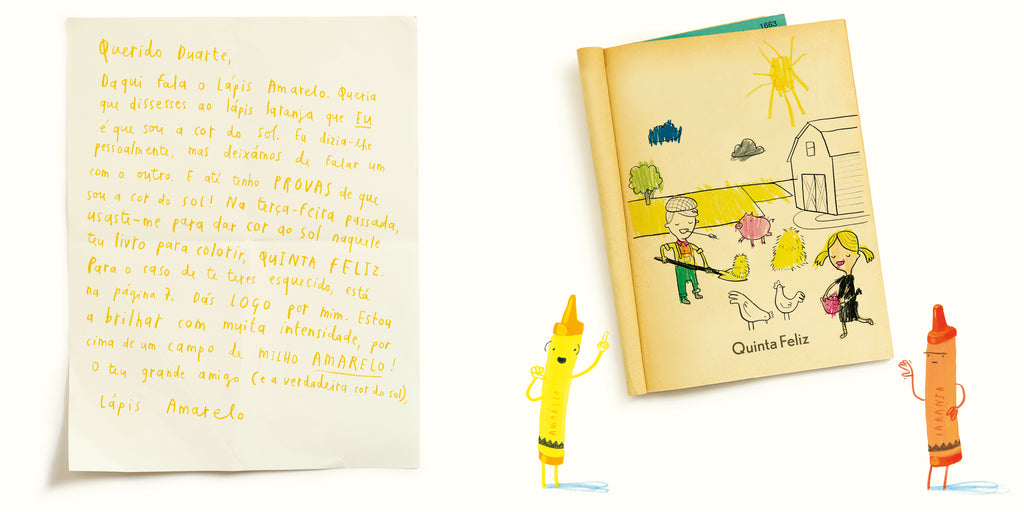 Querido Duarte,
Daqui fala o Lápis Amarelo. Queria
que dissesses ao lápis laranja que EU
é que sou a cor do sol. Eu dizia-lhe
pessoalmente, mas deixámos de falar um
com o outro. E até tenho PROVAS de que
sou a cor do sol! Na terça-feira passada,
usaste-me para dar cor ao sol naquele
teu livro para colorir, QUINTA FELIZ.
Para o caso de te teres esquecido, está
na página 7. Dás LOGO por mim. Estou
a brilhar com muita intensidade, por
cima de um campo de MILHO AMARELO!
O teu grande amigo (e a verdadeira cor do sol),
Lápis Amarelo
1663
Quinta Feliz
AMARELO
LARANJA